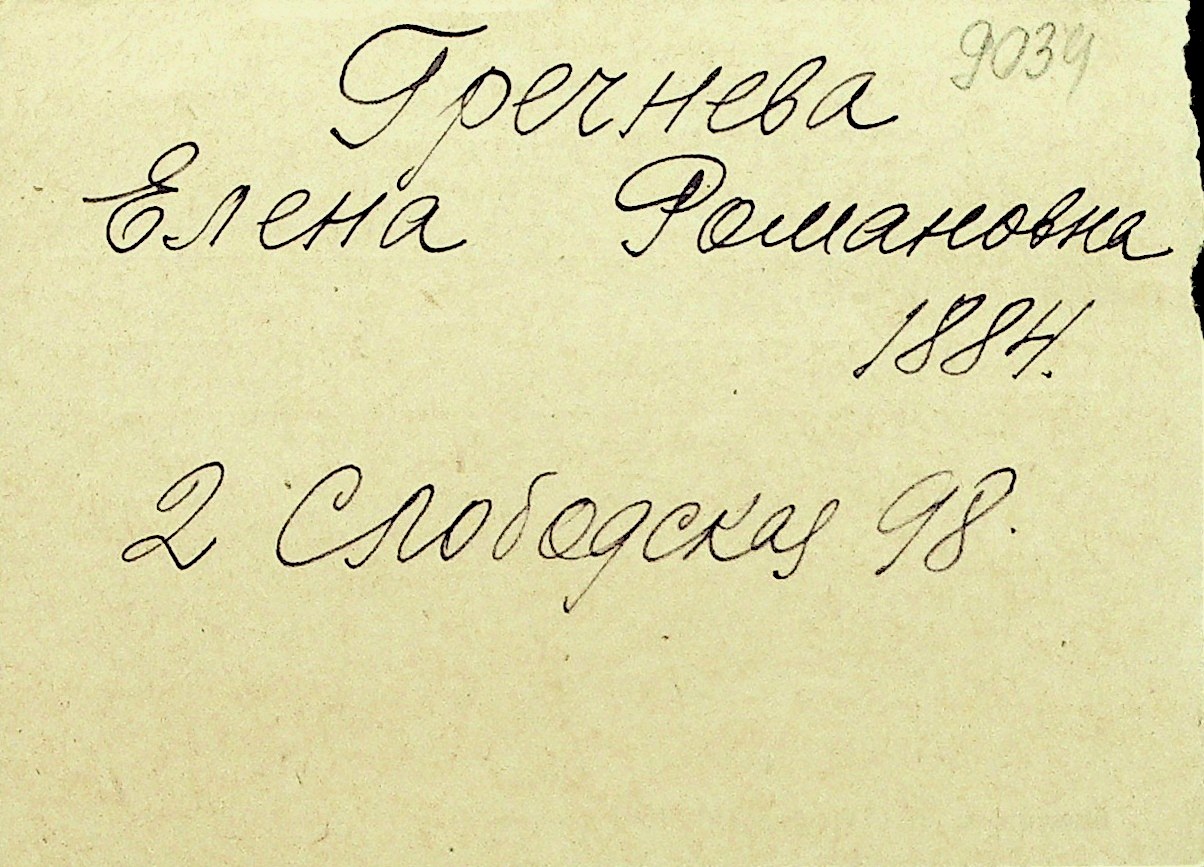 9034
Гречнева
Елена Романовна
1884.
2 Слободская 98.